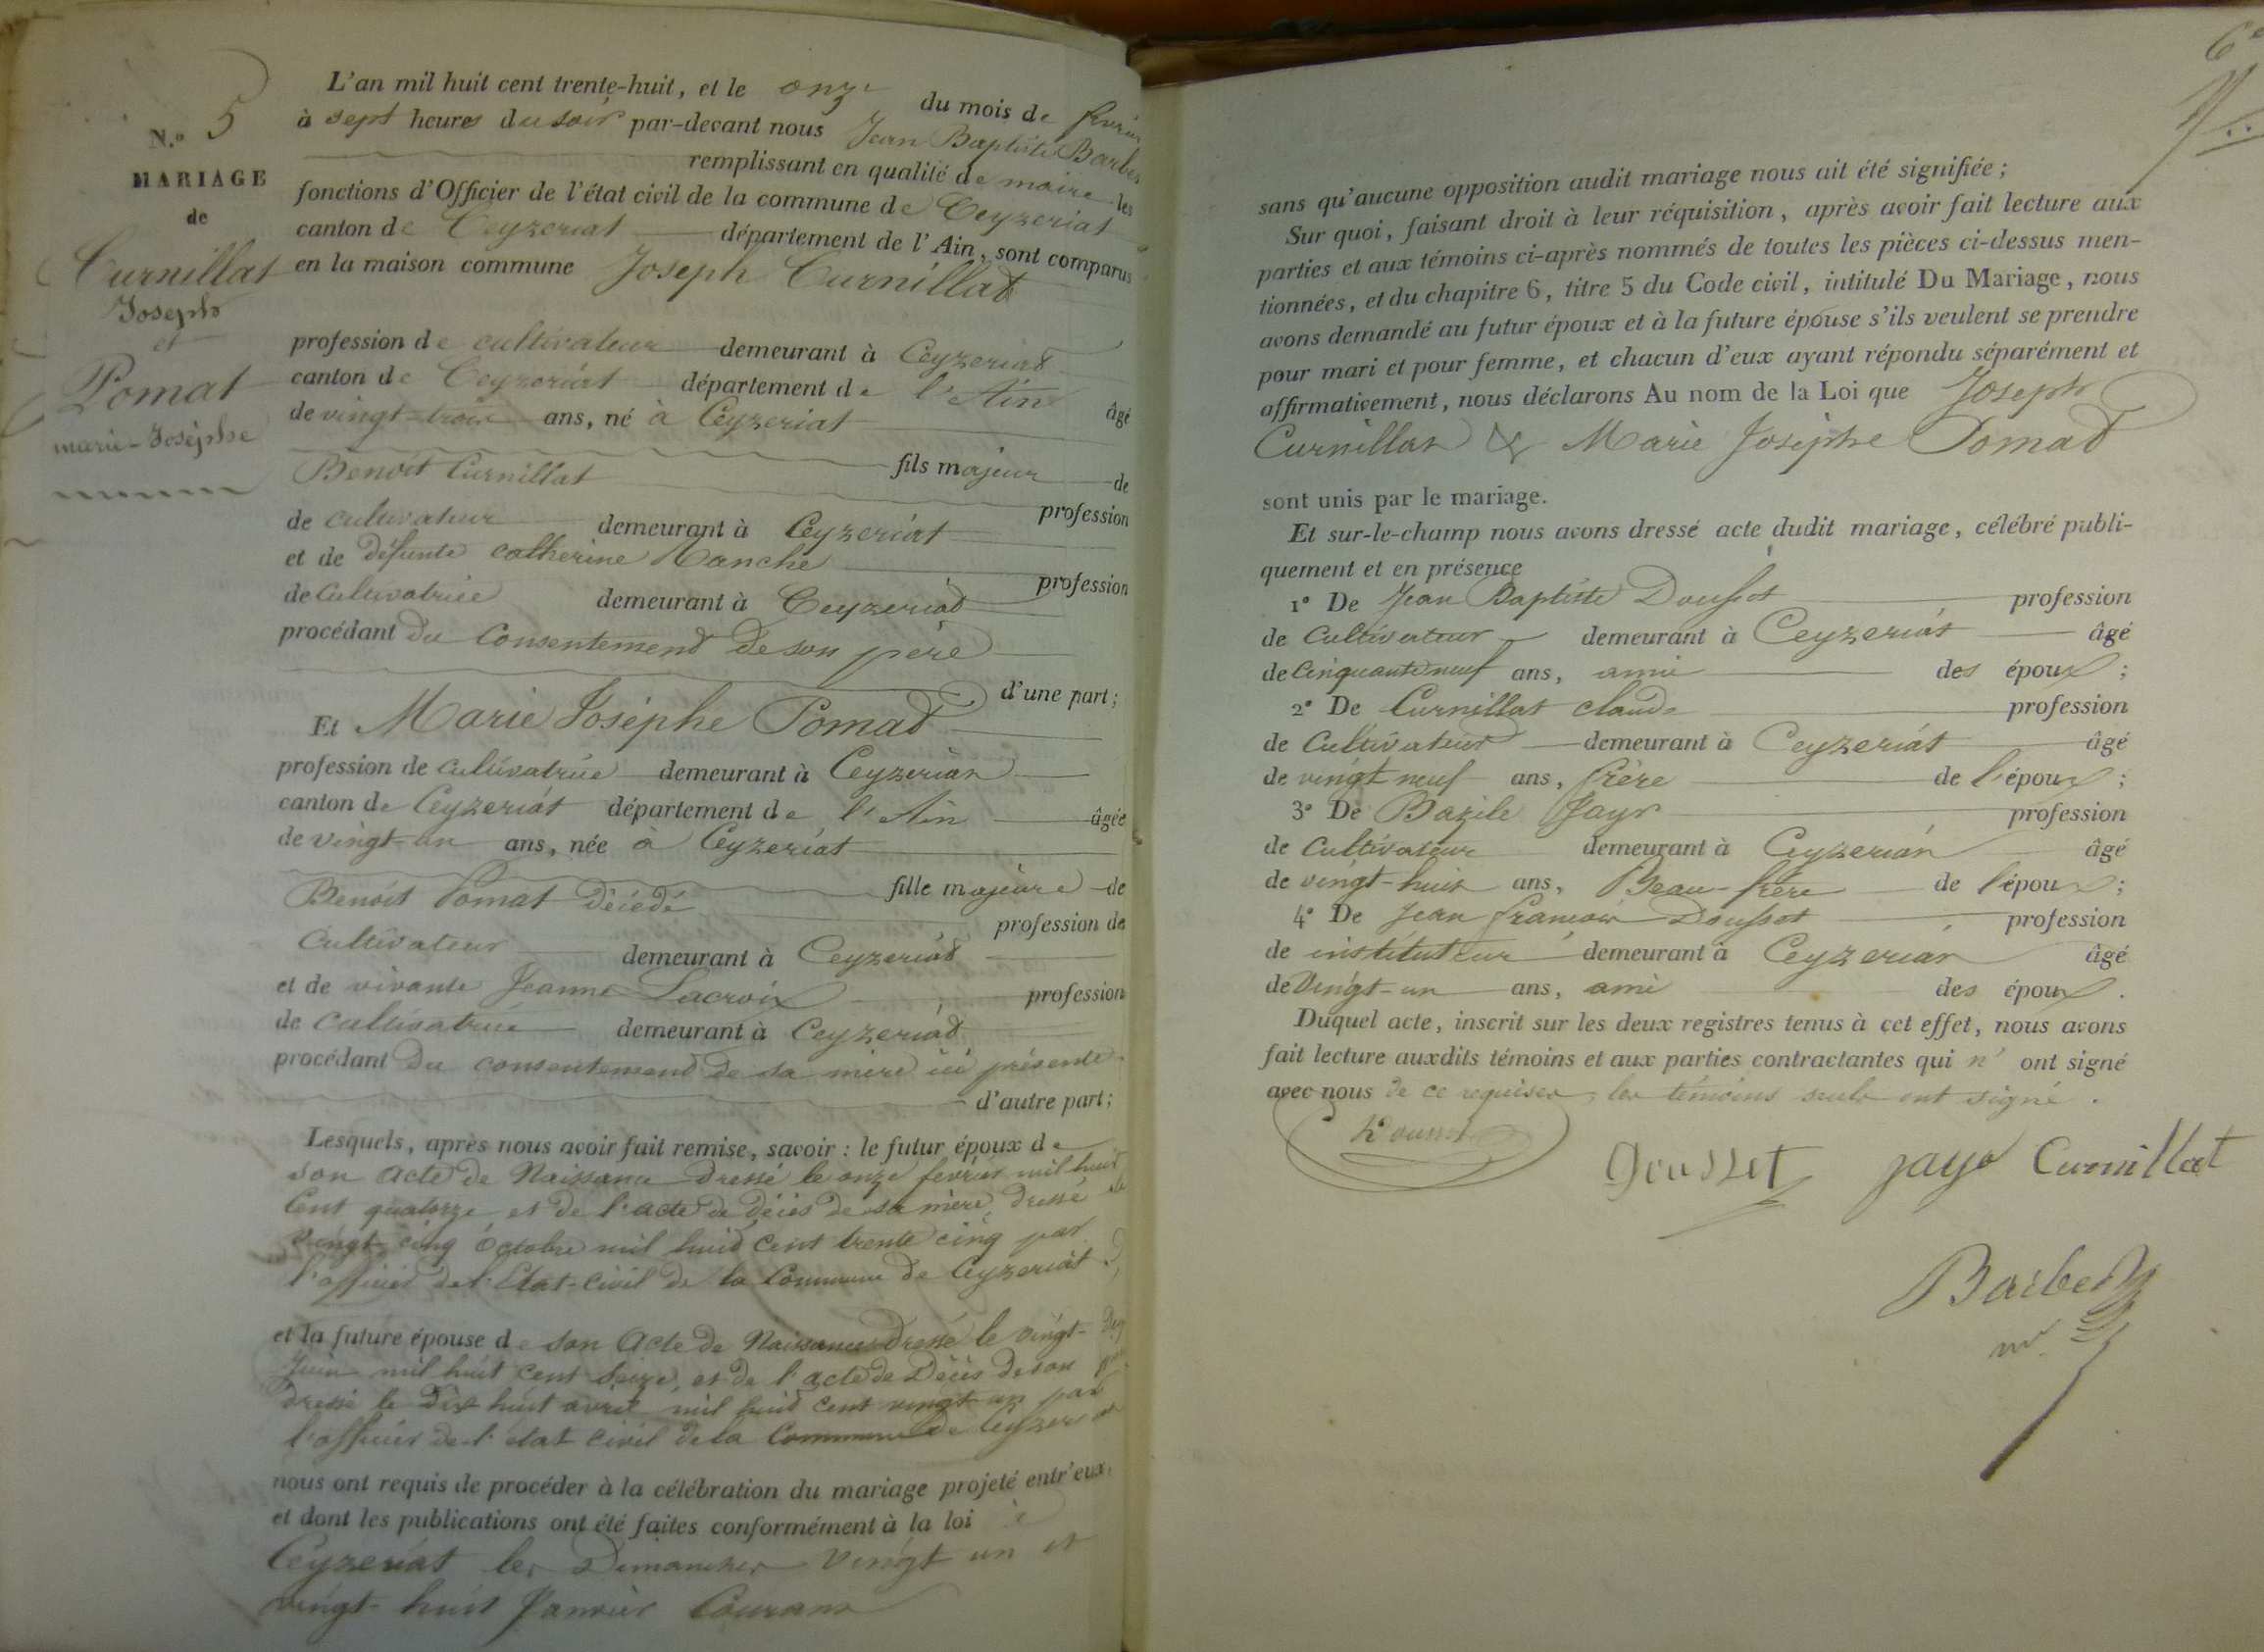 N.o 5
MARIAGE
de
Curnillat
Joseph
et
Pomat
marie-Josèphe
L'an mil huit cent trente-huit, et le onze du mois de février
à sept heures du soir par-devant nous Jean Baptiste Barbe
remplissant en qualité de maire les
fonctions d'Officier de l'état civil de la commune de Ceyzeriat
canton de Ceyzeriat département de l'Ain, sont comparus
en la maison commune Joseph Curnillat
profession de cultivateur demeurant à Ceyzeriat
canton de Ceyzeriat département de l'Ain âgé
de vingt-trois ans, né à Ceyzeriat
fils majeur de
Benoit Curnillat profession
de cultivateur demeurant à Ceyzeriat
et de défunte catherine profession
de Cultivatrice demeurant à Ceyzeriat
procédant du consentement de son père
d'une part;
Et Marie Josèphe Pomat
profession de cultivatrice demeurant à Ceyzeriat
canton de Ceyzeriat département de l'Ain âgée
de vingt-un ans, née à Ceyzeriat
fille majeure de
Benoit Pomat décédé profession de
Cultivateur demeurant à Ceyzeriat
et de vivante Jeanne Lacroix profession
de Cultivatrice demeurant à Ceyzeriat
procédant du consentement de sa mère ici présente
d'autre part;
Lesquels, après nous avoir fait remise, savoir : le futur époux de
son acte de Naissance dressé le onze fevrier mil huit
Cent quatorze et de l'acte de décès de sa mère dressé le
vingt cinq Octobre mil huit Cent trente cinq par
l'officier de l'Etat-civil de la Commune de Ceyzeriat
et la future épouse de son Acte de Naissance dressé le vingt-
Juin mil huit cent Seize, et de l'acte de Décès de son père
dressé le Dix huit avril mil huit cent vingt un par
l'officier de l'état civil de la Commune de Ceyzeriat
nous ont requis de procéder à la célébration du mariage projeté entr'eux,
et dont les publications ont été faites conformément à la loi à
Ceyzeriat les Dimanches vingt un et
vingt-huit Janvier Courant
sans qu'aucune opposition audit mariage nous ait été signifiée;
Sur quoi, faisant droit à leur réquisition, après avoir fait lecture aux
parties et aux témoins ci-après nommés de toutes les pièces ci-dessus men-
tionnées, et du chapitre 6, titre 5 du Code civil, intitulé Du Mariage, nous
avons demandé au futur époux et à la future épouse s'ils veulent se prendre
pour mari et pour femme, et chacun d'eux ayant répondu séparément et
affirmativement, nous déclarons Au nom de la Loi que Joseph
Curnillat & Marie Josèphe Pomat
sont unis par le mariage.
Et sur-le-champ nous avons dressé acte dudit mariage, célébré publi-
quement et en présence
1° De Jean Baptiste Doussot profession
de Cultivateur demeurant à Ceyzeriat âgé
de Cinquante neuf ans, ami des époux;
2° De Curnillat claude profession
de Cultivateur demeurant à Ceyzeriat âgé
de vingt neuf ans, frère de l'époux;
3° De Bazile Jayr profession
de Cultivateur demeurant à Ceyzeriat âgé
de vingt-huit ans, Beau-frère de l'époux;
4° De Jean françois Doussot profession
de instituteur demeurant à Ceyzeriat âgé
de Vingt-un ans, ami des époux.
Duquel acte, inscrit sur les deux registres tenus à cet effet, nous avons
fait lecture auxdits témoins et aux parties contractantes qui n'ont signé
avec nous de ce requises, les témoins seuls ont signé.
Curnillat